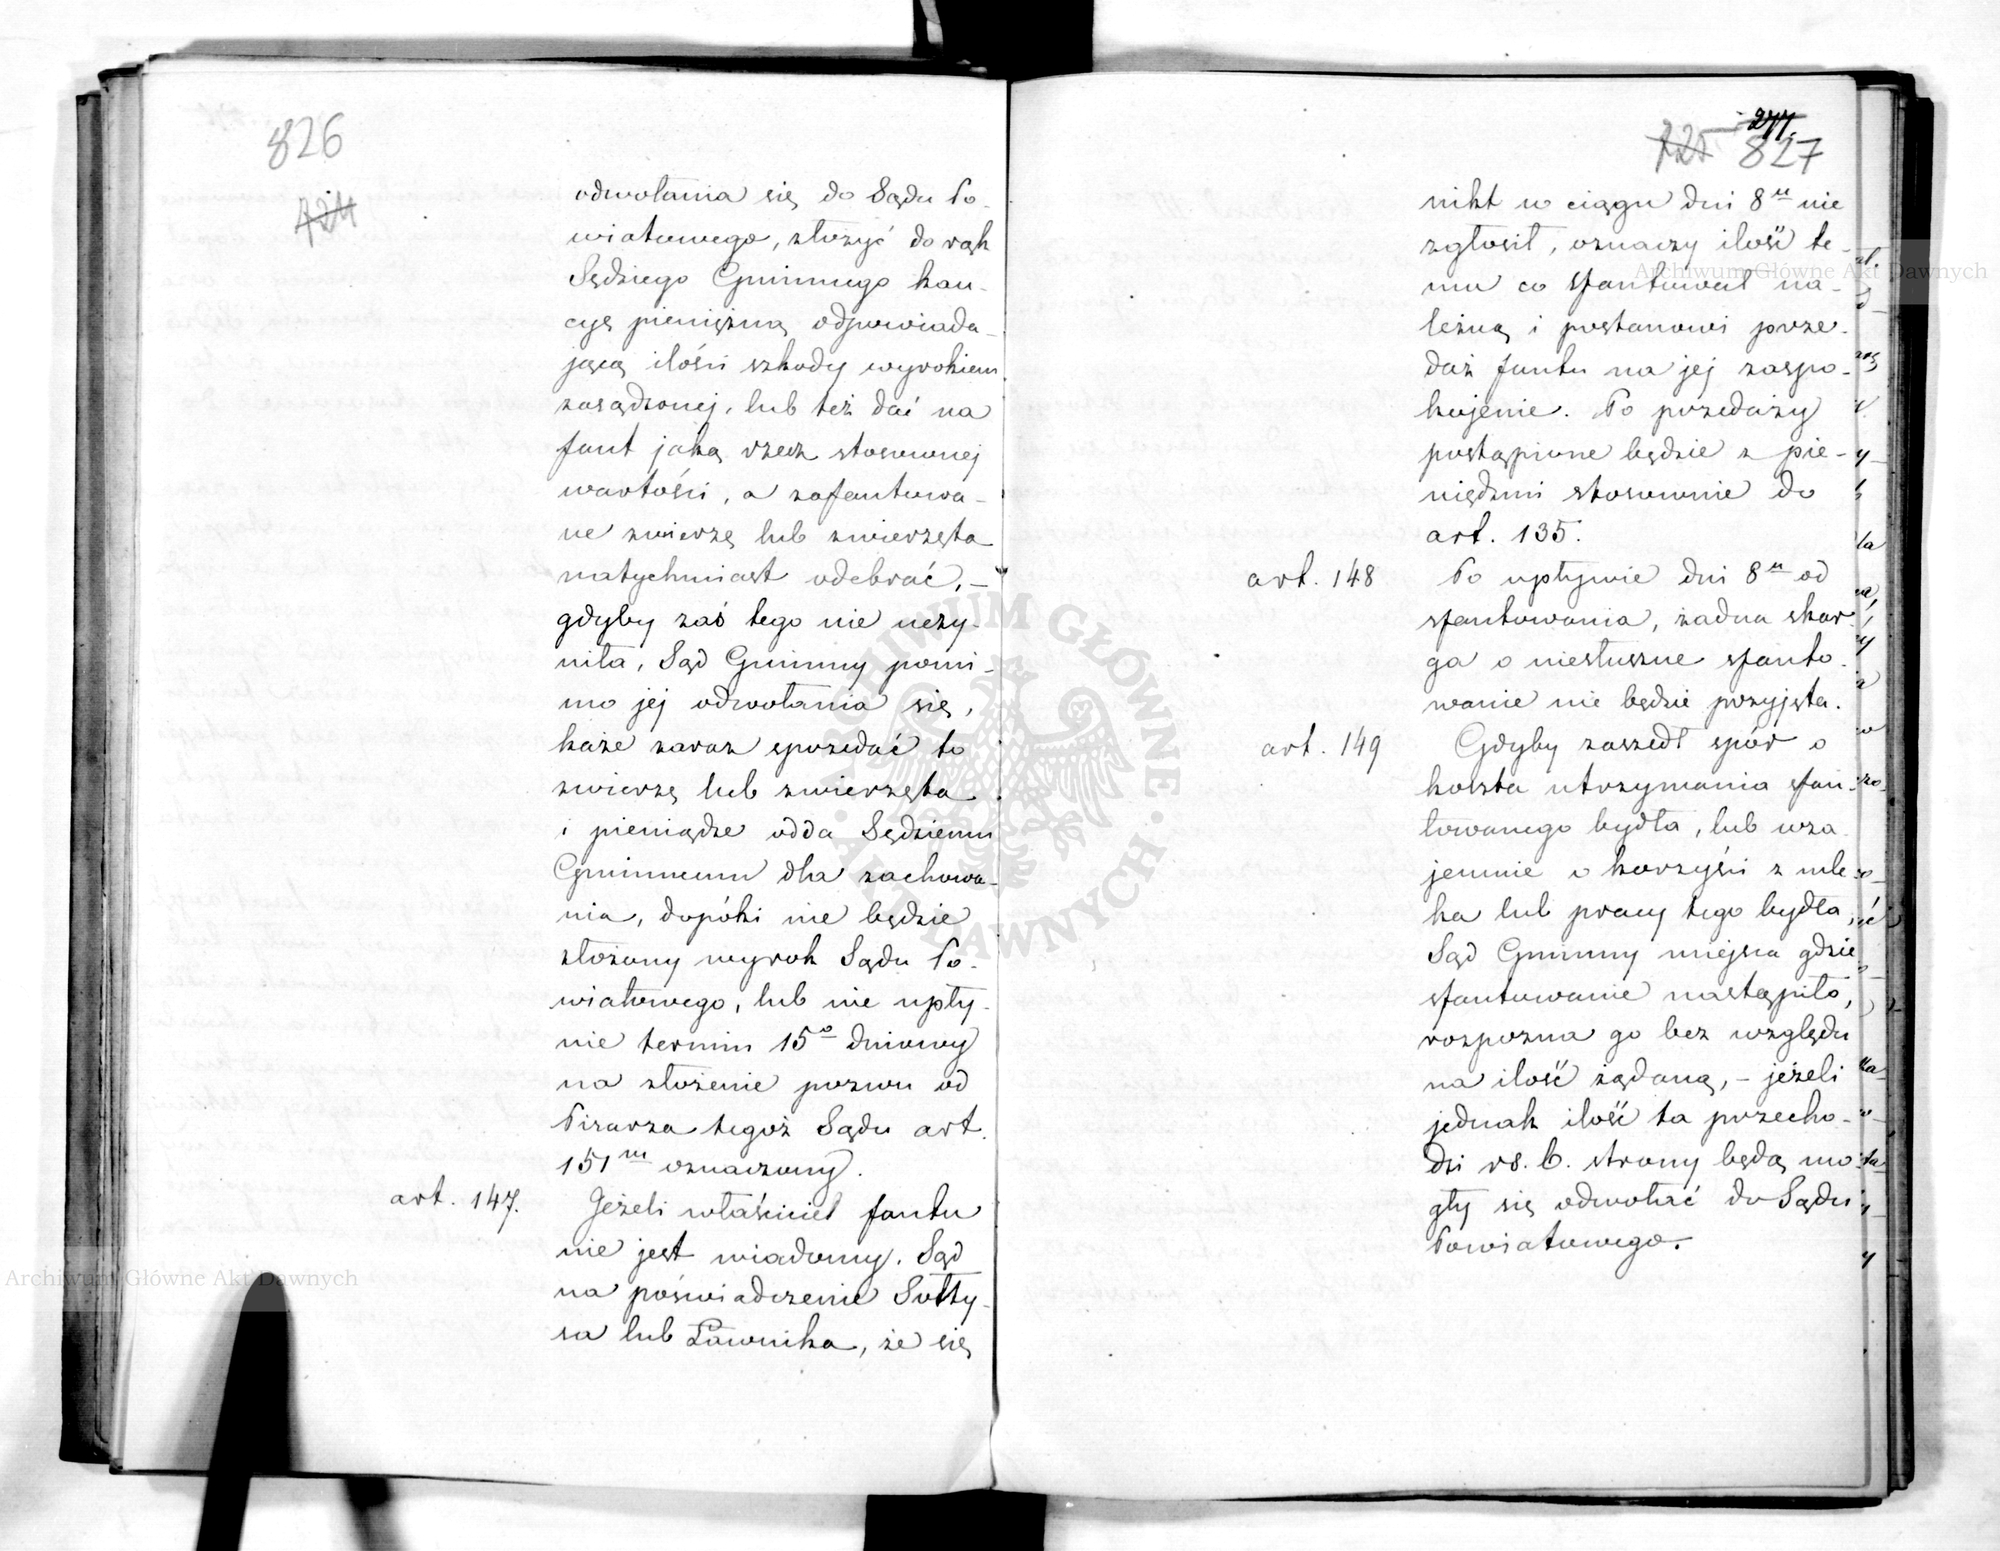 826
424
odwołania się do Sądu Po-
wiatowego, złożyć do rąk
Sędziego Gminnego kau-
cyę pieniężną odpowiada-
jącą ilości szkody wyrokiem
zasądzonej, lub też dać na
fant jaką rzecz stosownej
wartości, a zafantowa-
ne zwierzę lub zwierzęta
natychmiast odebrać, –
gdyby zaś tego nie uczy-
niła, Sąd Gminny pomi-
mo jej odwołania się,
każe zaraz sprzedać to
zwierzę lub zwierzęta
i pieniądze odda Sędziemu
Gminnemu dla zachowa-
nia, dopóki nie będzie
złożony wyrok Sądu Po-
wiatowego, lub nie upły-
nie termin 15o dniowy
na złożenie pozwu od
Pisarza tegoż Sądu art.
151m oznaczony.
art. 147.
Jeżeli właściciel fantu
nie jest wiadomy, Sąd
na poświadczenie Sołty-
sa lub Ławnika, że się
277.
225 827
nikt w ciągu dni 8u nie
zgłosił, oznaczy ilość te-
mu co sfantował na-
leżną i postanowi prze-
daż fantu na jej zaspo-
kojenie. Po przedaży
postąpione będzie z pie-
niędzmi stosownie do
art. 135.
art. 148
Po upływie dni 8u od
sfantowania, żadna skar-
ga o niesłuszne sfanto-
wanie nie będzie przyjęta.
art. 149
Gdyby zaszedł spór o
koszta utrzymania sfan-
towanego bydła, lub wza-
jemnie o korzyści z mle-
ka lub pracy tego bydła,
Sąd Gminny miejsca gdzie
sfantowanie nastąpiło,
rozpozna go bez względu
na ilość żądaną, – jeżeli
jednak ilość ta przecho-
dzi rs. 6. strony będą mo-
gły się odwołać do Sądu
Powiatowego.
Archiwum Główne Akt Dawnych
Archiwum Główne Akt Dawnych
ARCHIWUM GŁÓWNE
AKT DAWNYCH